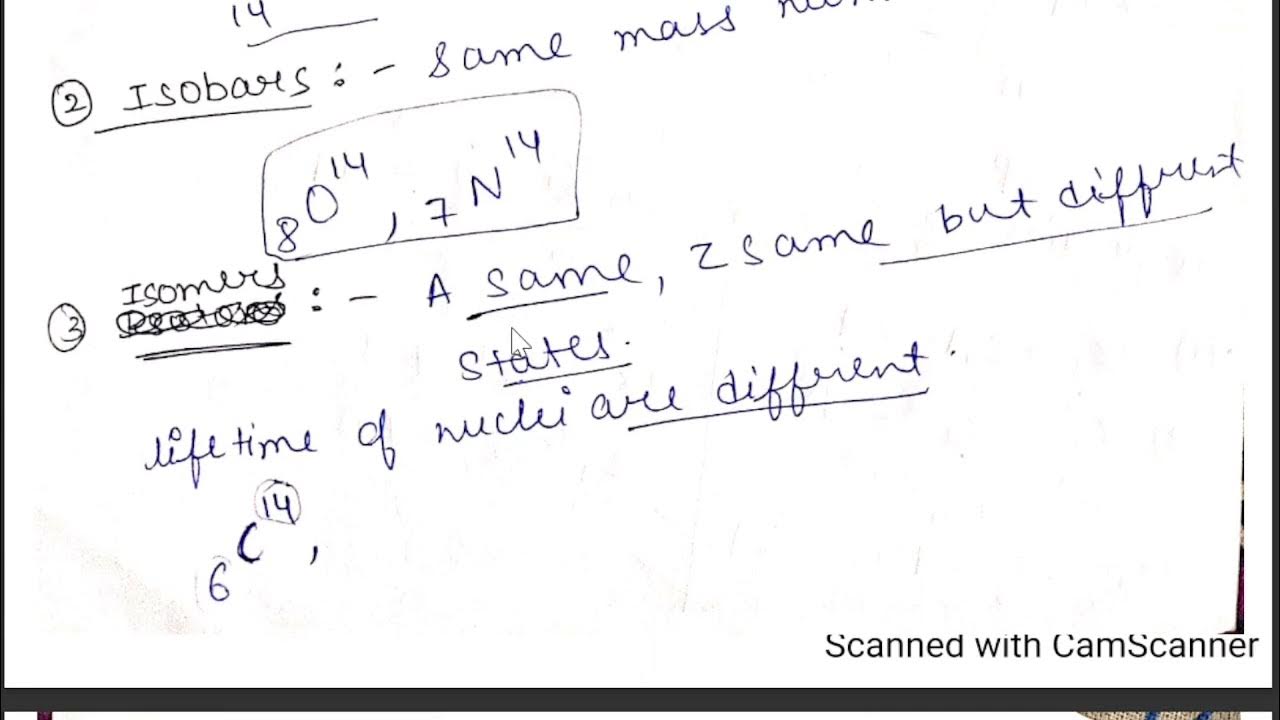 14
② Isobars : - Same mass
₈O¹⁴, ₇N¹⁴
③ Isomers : - A same, Z same but different
states.
lifetime of nuclei are different.
₆C¹⁴,
Scanned with CamScanner